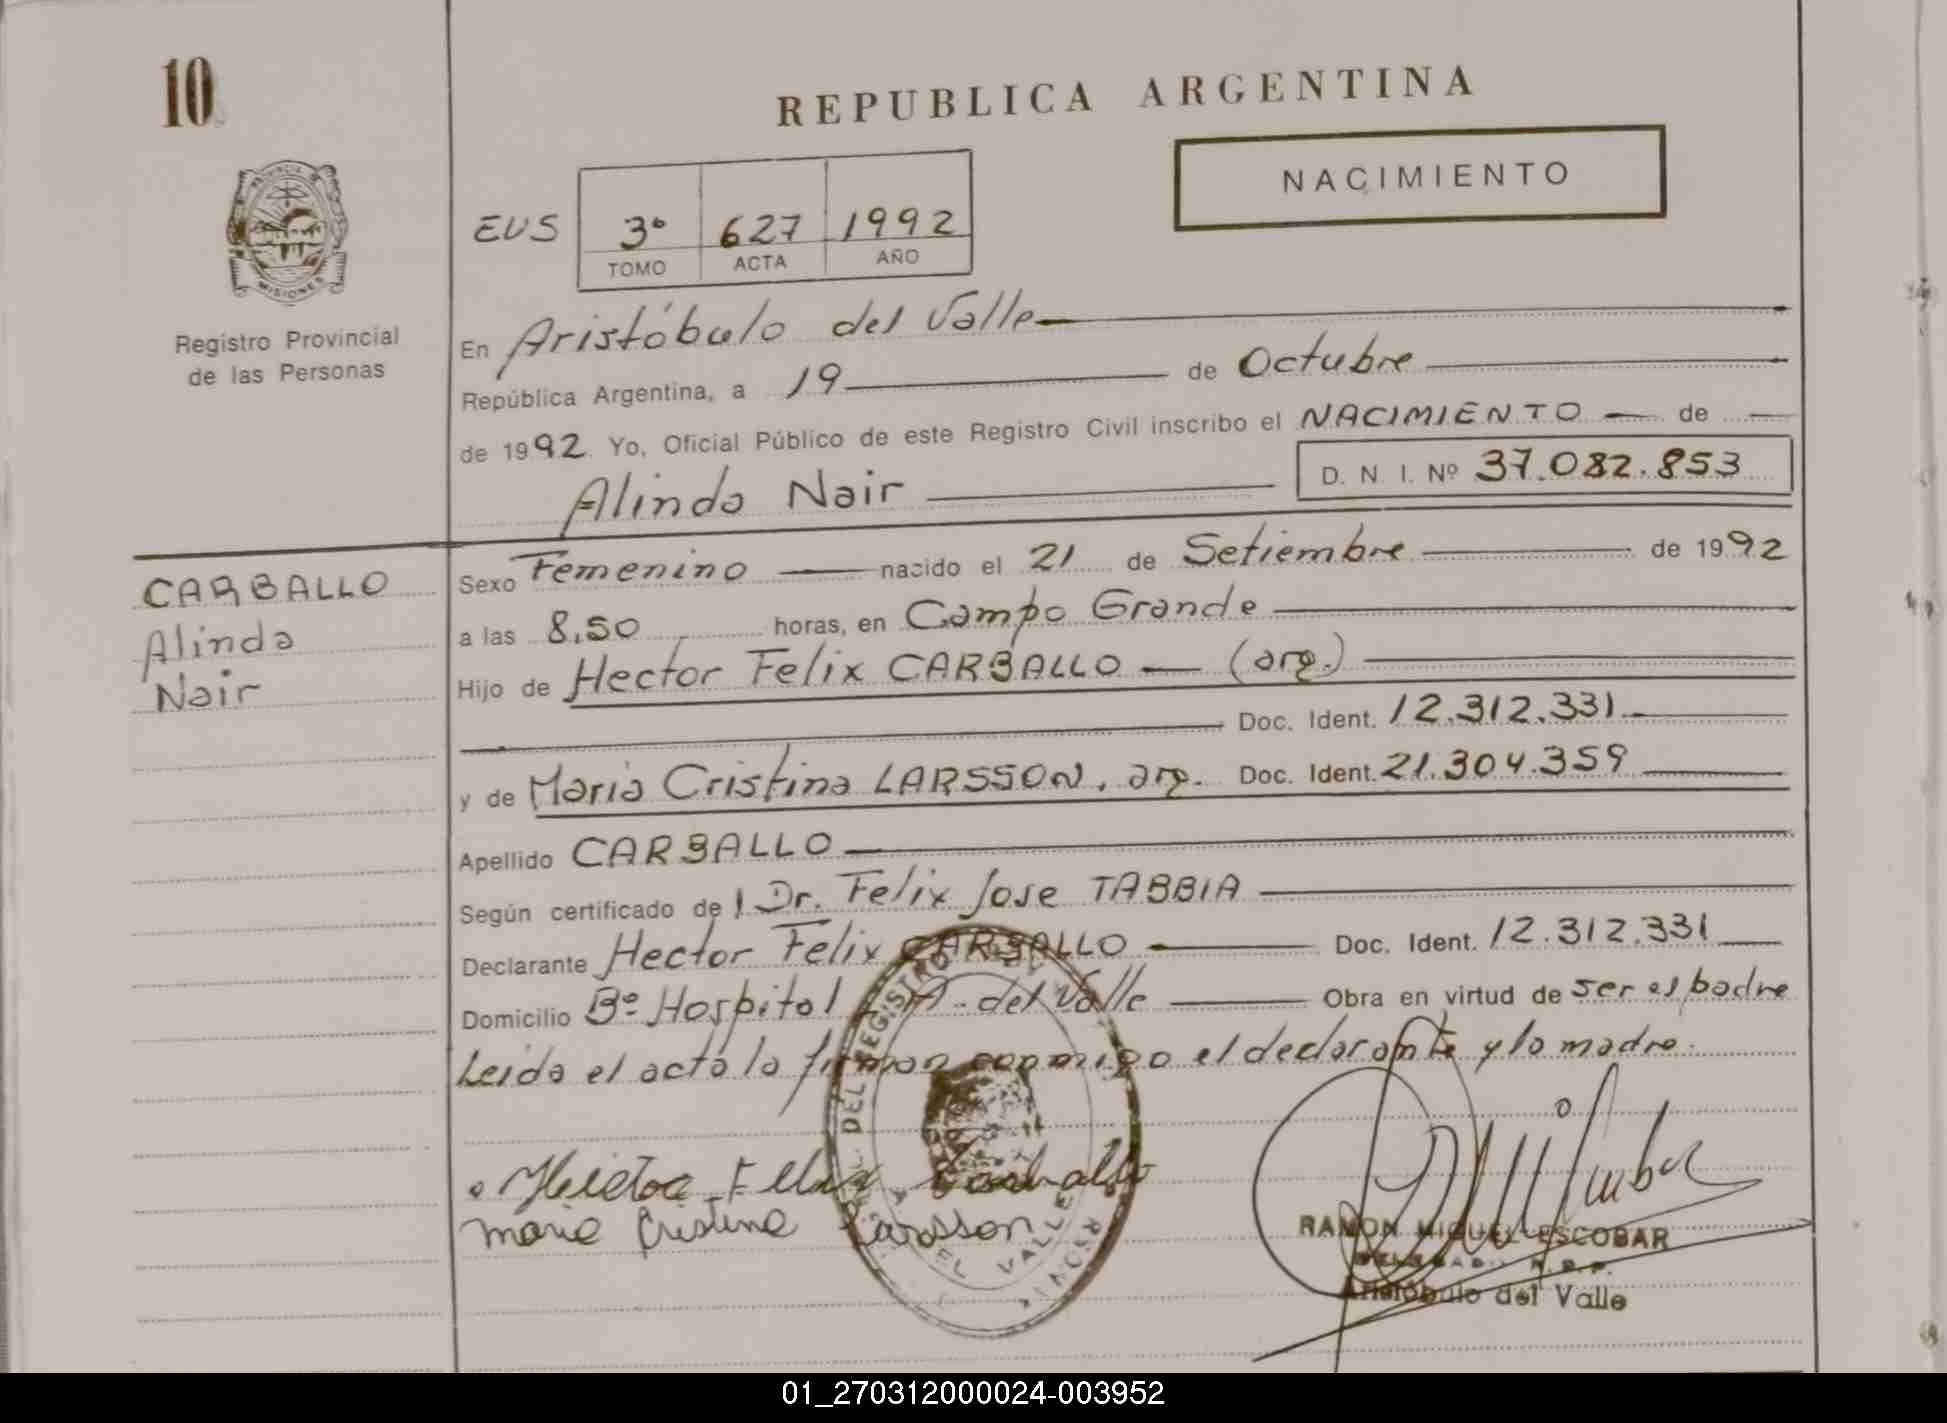 10
REPUBLICA ARGENTINA
NACIMIENTO
PROVINCIA DE
MISIONES
Registro Provincial
de las Personas
EUS 3° 627 1992
TOMO ACTA AÑO
En Aristóbulo del Valle
República Argentina, a 19 de Octubre
de 1992 Yo, Oficial Público de este Registro Civil inscribo el NACIMIENTO de
Alinda Nair D. N. I. Nº 37.082.853
CARBALLO
Alinda
Nair
Sexo Femenino nacido el 21 de Setiembre de 1992
a las 8,50 horas, en Campo Grande
Hijo de Hector Felix CARBALLO (arg.)
Doc. Ident. 12.312.331
y de Maria Cristina LARSSON, arg. Doc. Ident. 21.304.359
Apellido CARBALLO
Según certificado de l Dr. Felix Jose TABBIA
Declarante Hector Felix CARBALLO Doc. Ident. 12.312.331
Domicilio Bº Hospital A. del Valle Obra en virtud de ser el padre
Leida el acta la firman conmigo el declarante y la madre.
Hector Felix Carballo
Maria Cristina Larsson
DEL REGISTRO
EL VALLE
RAMON MIGUEL ESCOBAR
Aristóbulo del Valle
01_270312000024-003952